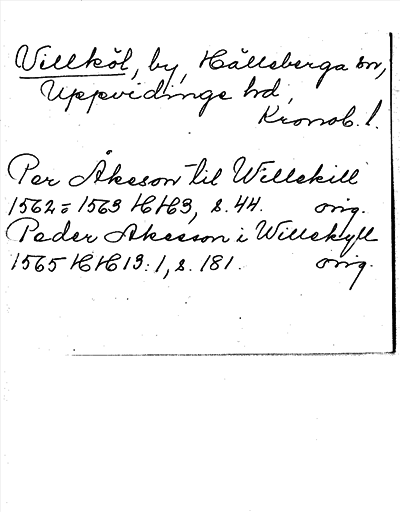 Villköl, by, Hälleberga sn,
Uppvidinge hd,
Kronob. l.
Per Åkesson til Willekill
1562 = 1563 HH3, s. 44. orig.
Peder Akesson i Willekyll
1565 HH13:1, s. 181. orig.